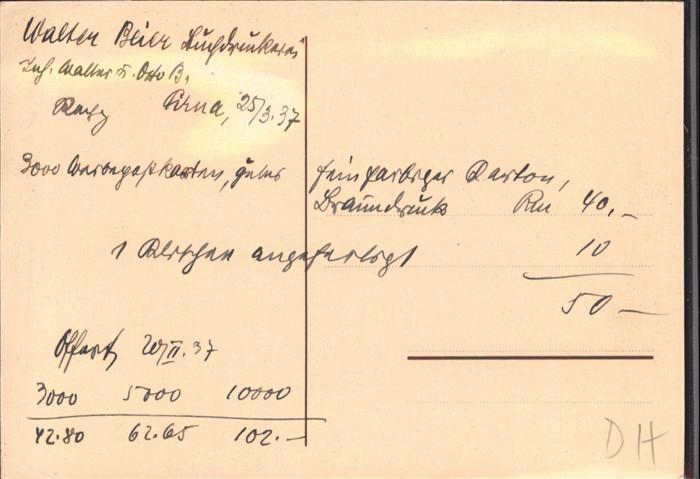 Walter Beier Buchdruckerei
Inh. Walter u. Otto B.
Pirna, 25/3.37
3000 Werbepostkarten, gutes feinfarbiger Karton,
Braundruck RM 40.–
1 Klischee angefertigt 10
50 –
Offert 20/II.37
3000 5000 10000
42.80 62.65 102.–
DH